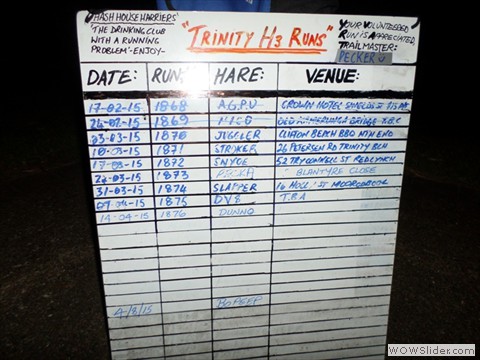 HASH HOUSE HARRIERS'
'THE DRINKING CLUB
WITH A RUNNING
PROBLEM' -ENJOY-
"TRINITY H3 RUNS"
YOUR VOLUNTEERED
RUN IS APPRECIATED,
TRAILMASTER:
PECKER
DATE: RUN: HARE: VENUE:
17-02-15 1868 A.G.P.U CROWN HOTEL
24-02-15 1869
03-03-15 1870 JIGGLER CLIFTON BEACH BBQ NTH END
10-03-15 1871 STROKER 26 PETERSEN RD TRINITY BCH
17-03-15 1872 52 TRYCONNELL ST REDLYNCH
24-03-15 1873 BLANTYRE CLOSE
31-03-15 1874 SLAPPER 16 ST MOOROOBOOL
07-04-15 1875 DVS T.B.A
14-04-15 1876 DUNNO
4/8/15 BOPEEP
WOWSlider.com